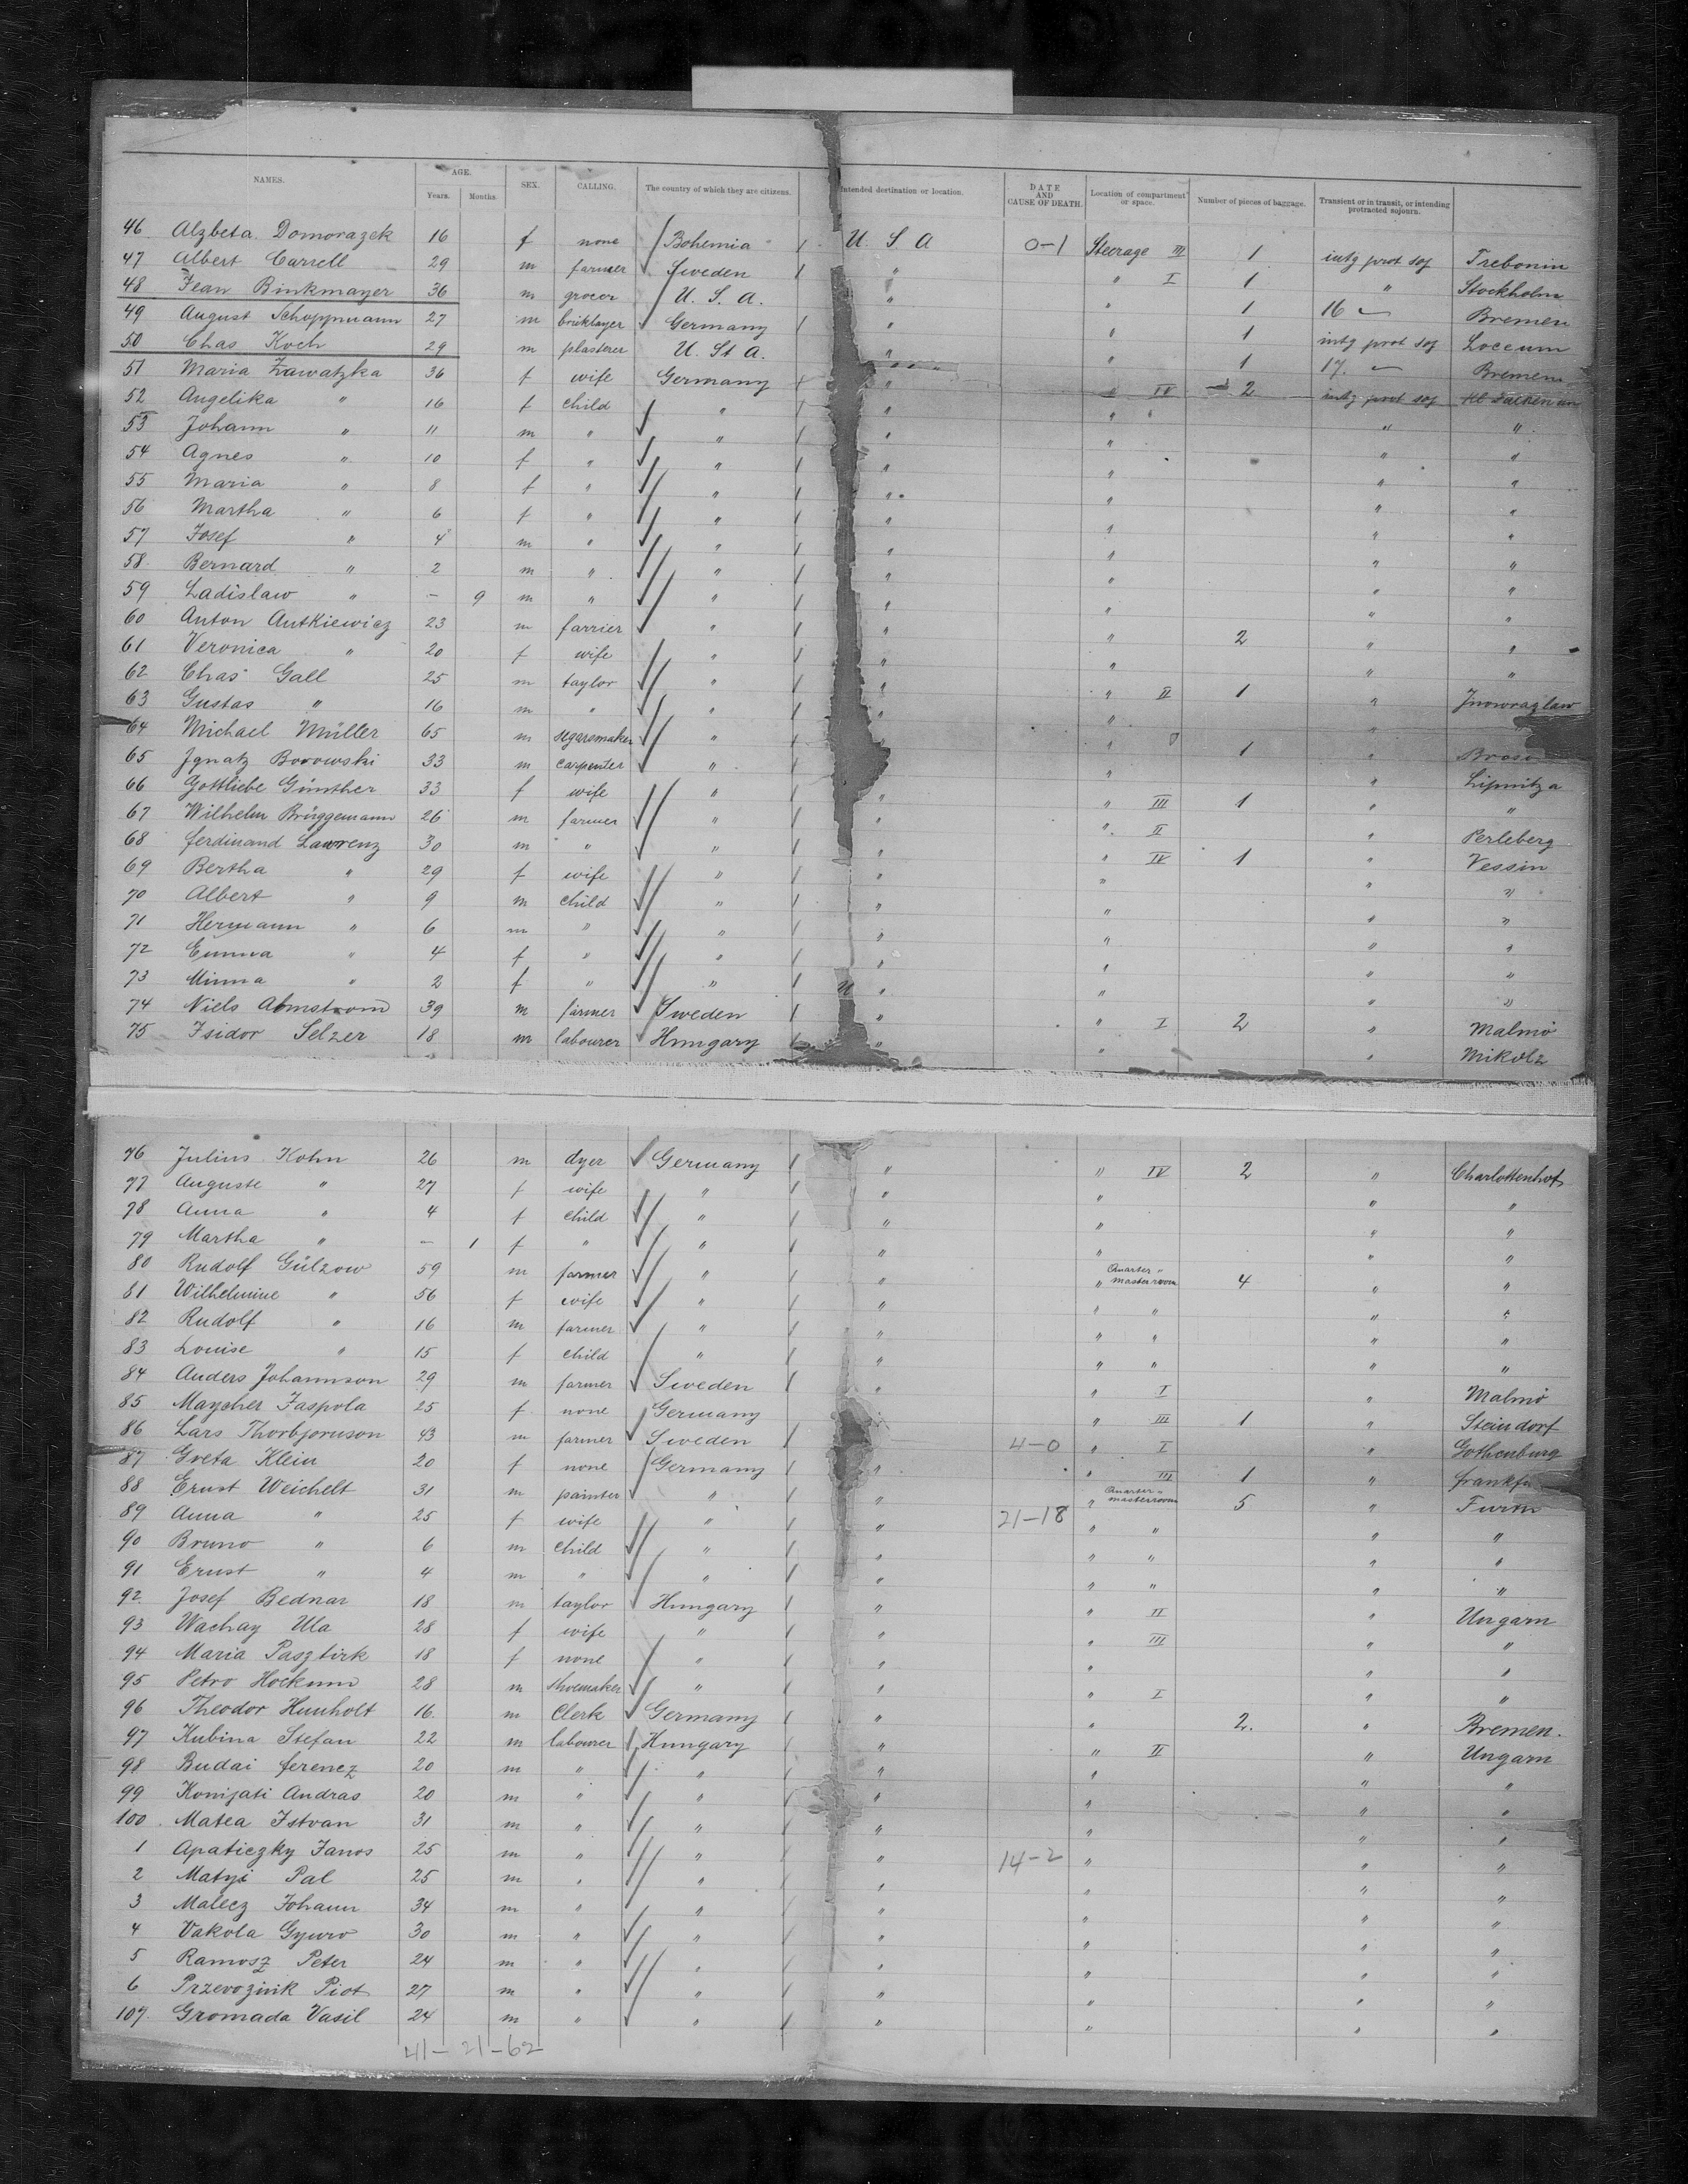 NAMES. AGE. Years. Months. SEX. CALLING. The country of which they are citizens. Intended destination or location. DATE AND CAUSE OF DEATH. Location of compartment or space. Number of pieces of baggage. Transient or in transit, or intending protracted sojourn.
46 Alzbeta Domorazek 16 f none Bohemia U. S. A 0-1 Steerage III 1 intg prot soj Trebonin
47 Albert Carrell 29 m farmer Sweden " " I 1 " Stockholm
48 Jean Binkmayer 36 m grocer U. S. A. " " 1 16 Bremen
49 August Schoppmann 27 m bricklayer Germany " " 1 intg prot soj Loccum
50 Chas Koch 29 m plasterer U. St A. " " 1 17. Bremen
51 Maria Zawatzka 36 f wife Germany " " IV 2 intg prot soj Kl
52 Angelika " 16 f child " " " " "
53 Johann " 11 m " " " " " "
54 Agnes " 10 f " " " " " "
55 Maria " 8 f " " " " " "
56 Martha " 6 f " " " " " "
57 Josef " 4 m " " " " " "
58 Bernard " 2 m " " " " " "
59 Ladislaw " – 9 m " " " " " "
60 Anton Autkiewicz 23 m farrier " " " 2 " "
61 Veronica " 20 f wife " " " " "
62 Chas Gall 25 m taylor " " " II 1 " Jnowrazlaw
63 Gustas " 16 m " " " " "
64 Michael Müller 65 m segarsmaker " " 1 "
65 Jgnatz Borowski 33 m carpenter " " " Lipnitza
66 Gottliebe Günther 33 f wife " " " III 1 " "
67 Wilhelm Brüggemann 26 m farmer " " " II " Perleberg
68 Ferdinand Lawrenz 30 m " " " " IV 1 " Vessin
69 Bertha " 29 f wife " " " " "
70 Albert " 9 m child " " " " "
71 Hermann " 6 m " " " " " "
72 Emma " 4 f " " " " " "
73 Minna " 2 f " " " " " "
74 Niels Almstrom 39 m farmer Sweden " " I 2 " Malmö
75 Isidor Selzer 18 m labourer Hungary " " " Mikolz
76 Julius Kohn 26 m dyer Germany " " IV 2 " Charlottenhof
77 Auguste " 27 f wife " " " " "
78 Anna " 4 f child " " " " "
79 Martha " – 1 f " " " " " "
80 Rudolf Gülzow 59 m farmer " " " Quarter masterroom 4 " "
81 Wilhelmine " 56 f wife " " " " " "
82 Rudolf " 16 m farmer " " " " " "
83 Louise " 15 f child " " " " " "
84 Anders Johannson 29 m farmer Sweden " " I " Malmö
85 Maycher Jaspola 25 f none Germany " III 1 " Steindorf
86 Lars Thorbjornson 43 m farmer Sweden 4-0 " I " Gothenburg
87 Greta Klein 20 f none Germany " " III 1 "
88 Ernst Weichelt 31 m painter " " " Quarter masterroom 5 "
89 Anna " 25 f wife " " 21-18 " " " "
90 Bruno " 6 m child " " " " " "
91 Ernst " 4 m " " " " " " "
92. Josef Bednar 18 m taylor Hungary " " II " Ungarn
93 Wachay Ula 28 f wife " " " III " "
94 Maria Pasztirk 18 f none " " " " "
95 Petro Hockum 28 m shoemaker " " " I " "
96 Theodor Hunholt 16. m Clerk Germany " " 2. " Bremen.
97 Kubina Stefan 22 m labourer Hungary " " II " Ungarn
98 Budai ferencz 20 m " " " " " "
99 Konijati Andras 20 m " " " " " "
100. Matea Istvan 31 m " " " " " "
1 Apaticzky Janos 25 m " " " 14-2 " " "
2 Matyi Pal 25 m " " " " " "
3 Malecz Johann 34 m " " " " " "
4 Vakola Gyuro 30 m " " " " " "
5 Ramosz Peter 24 m " " " " " "
6 Przevozink Piot 27 m " " " " " "
107. Gromada Vasil 24 m " " " " " "
41- 21-62